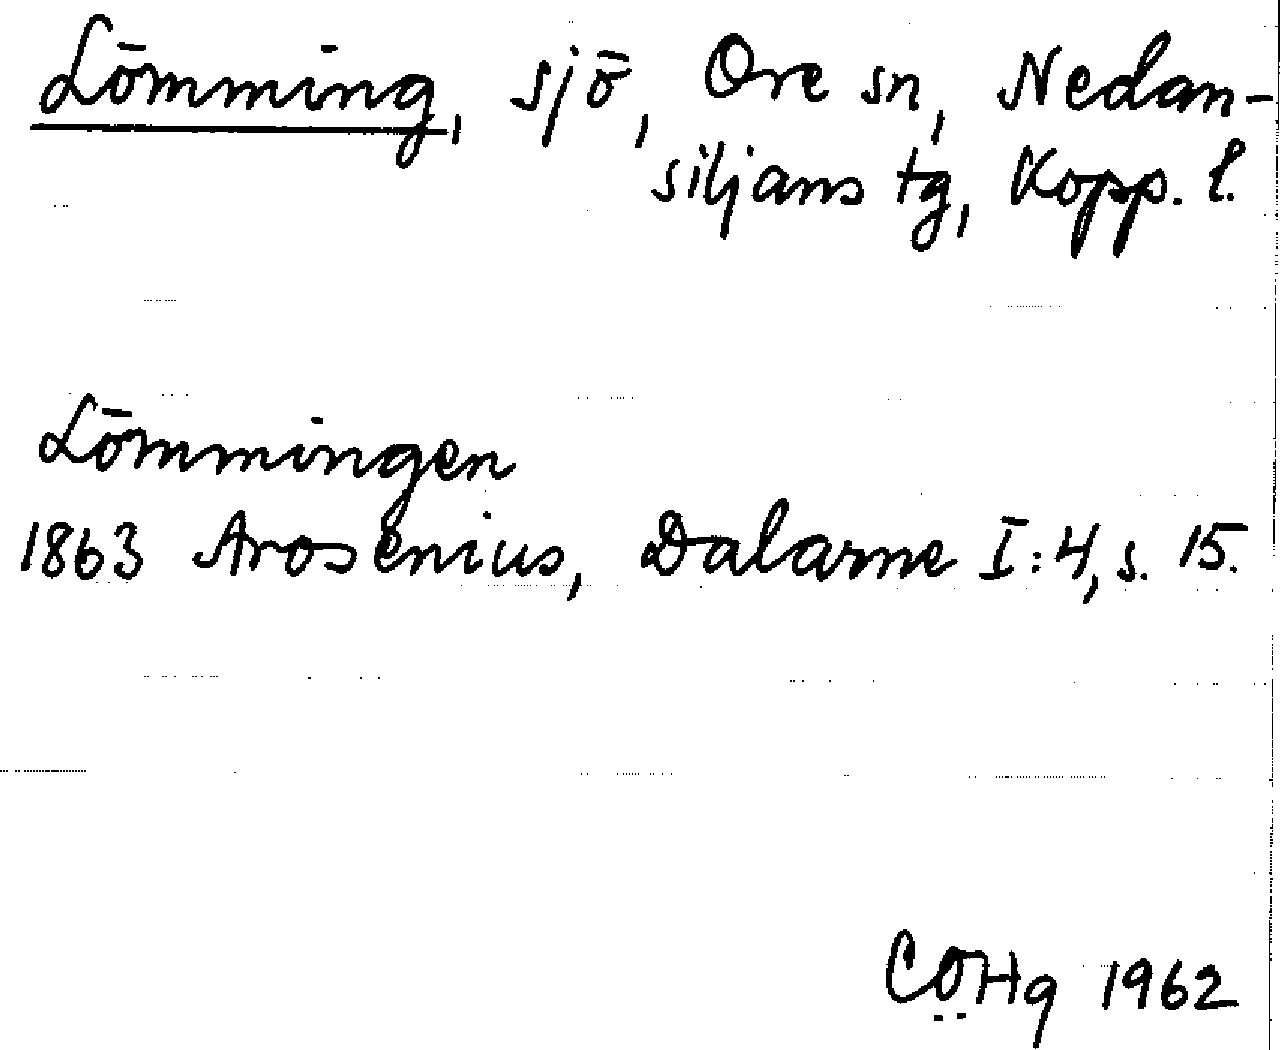 Lömming, sjö, Ore sn, Nedan-
siljans tg, Kopp. l.
Lömmingen
1863 Arosenius, Dalarne I:4, s. 15.
COHg 1962